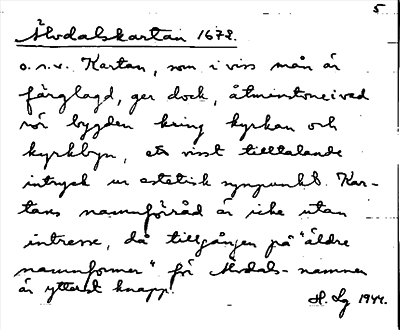 5
Älvdalskartan 1672.
o.s.v. Kartan, som i viss mån är
färglagd, ger dock, åtminstone i vad
rör bygden kring kyrkan och
kyrkbyn, ett visst tilltalande
intryck ur estetisk synpunkt. Kar-
tans namnförråd är icke utan
intresse, då tillgången på "äldre
namnformer" för Älvdals-namnen
är ytterst knapp.
H. Lg 1944.